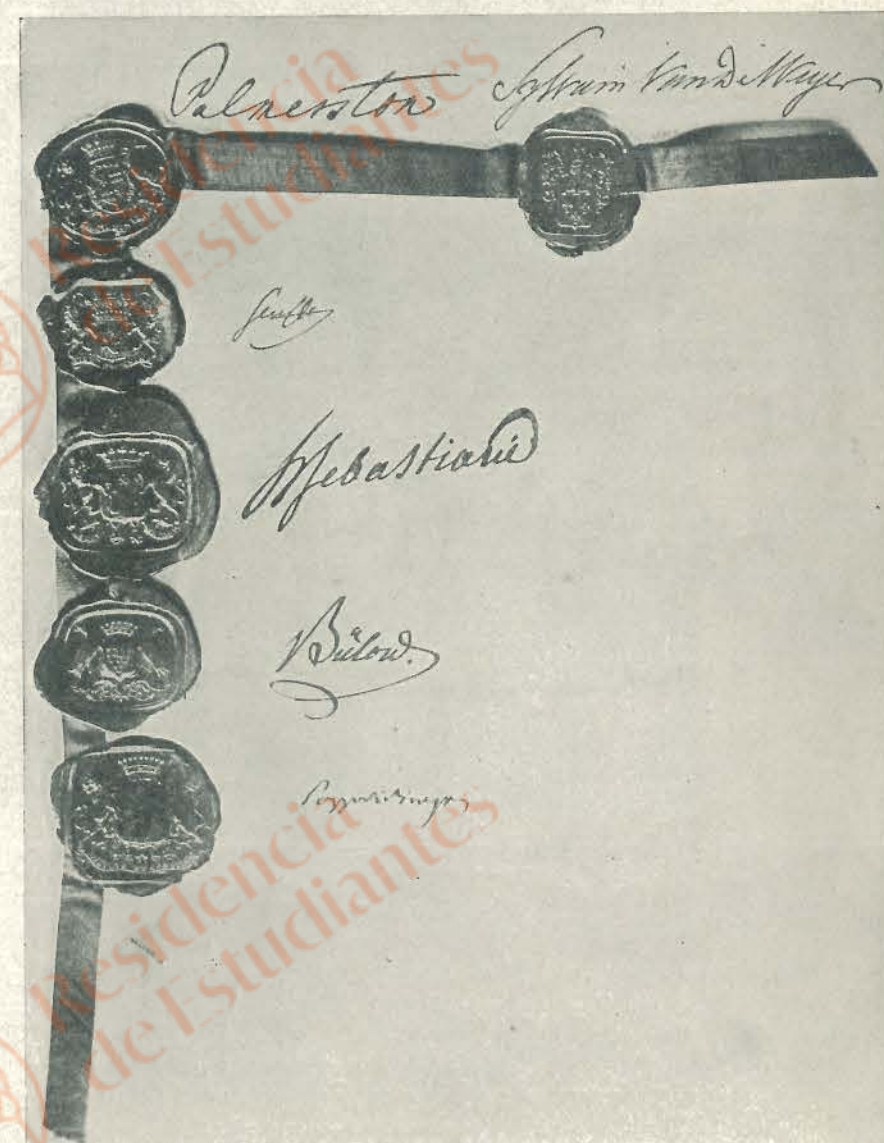 Palmerston Sylvain Van de Weyer
Senfft
H Sebastiani
Bülow.
Pozzo di Borgo
Residencia
de Estudiantes
Residencia
de Estudiantes